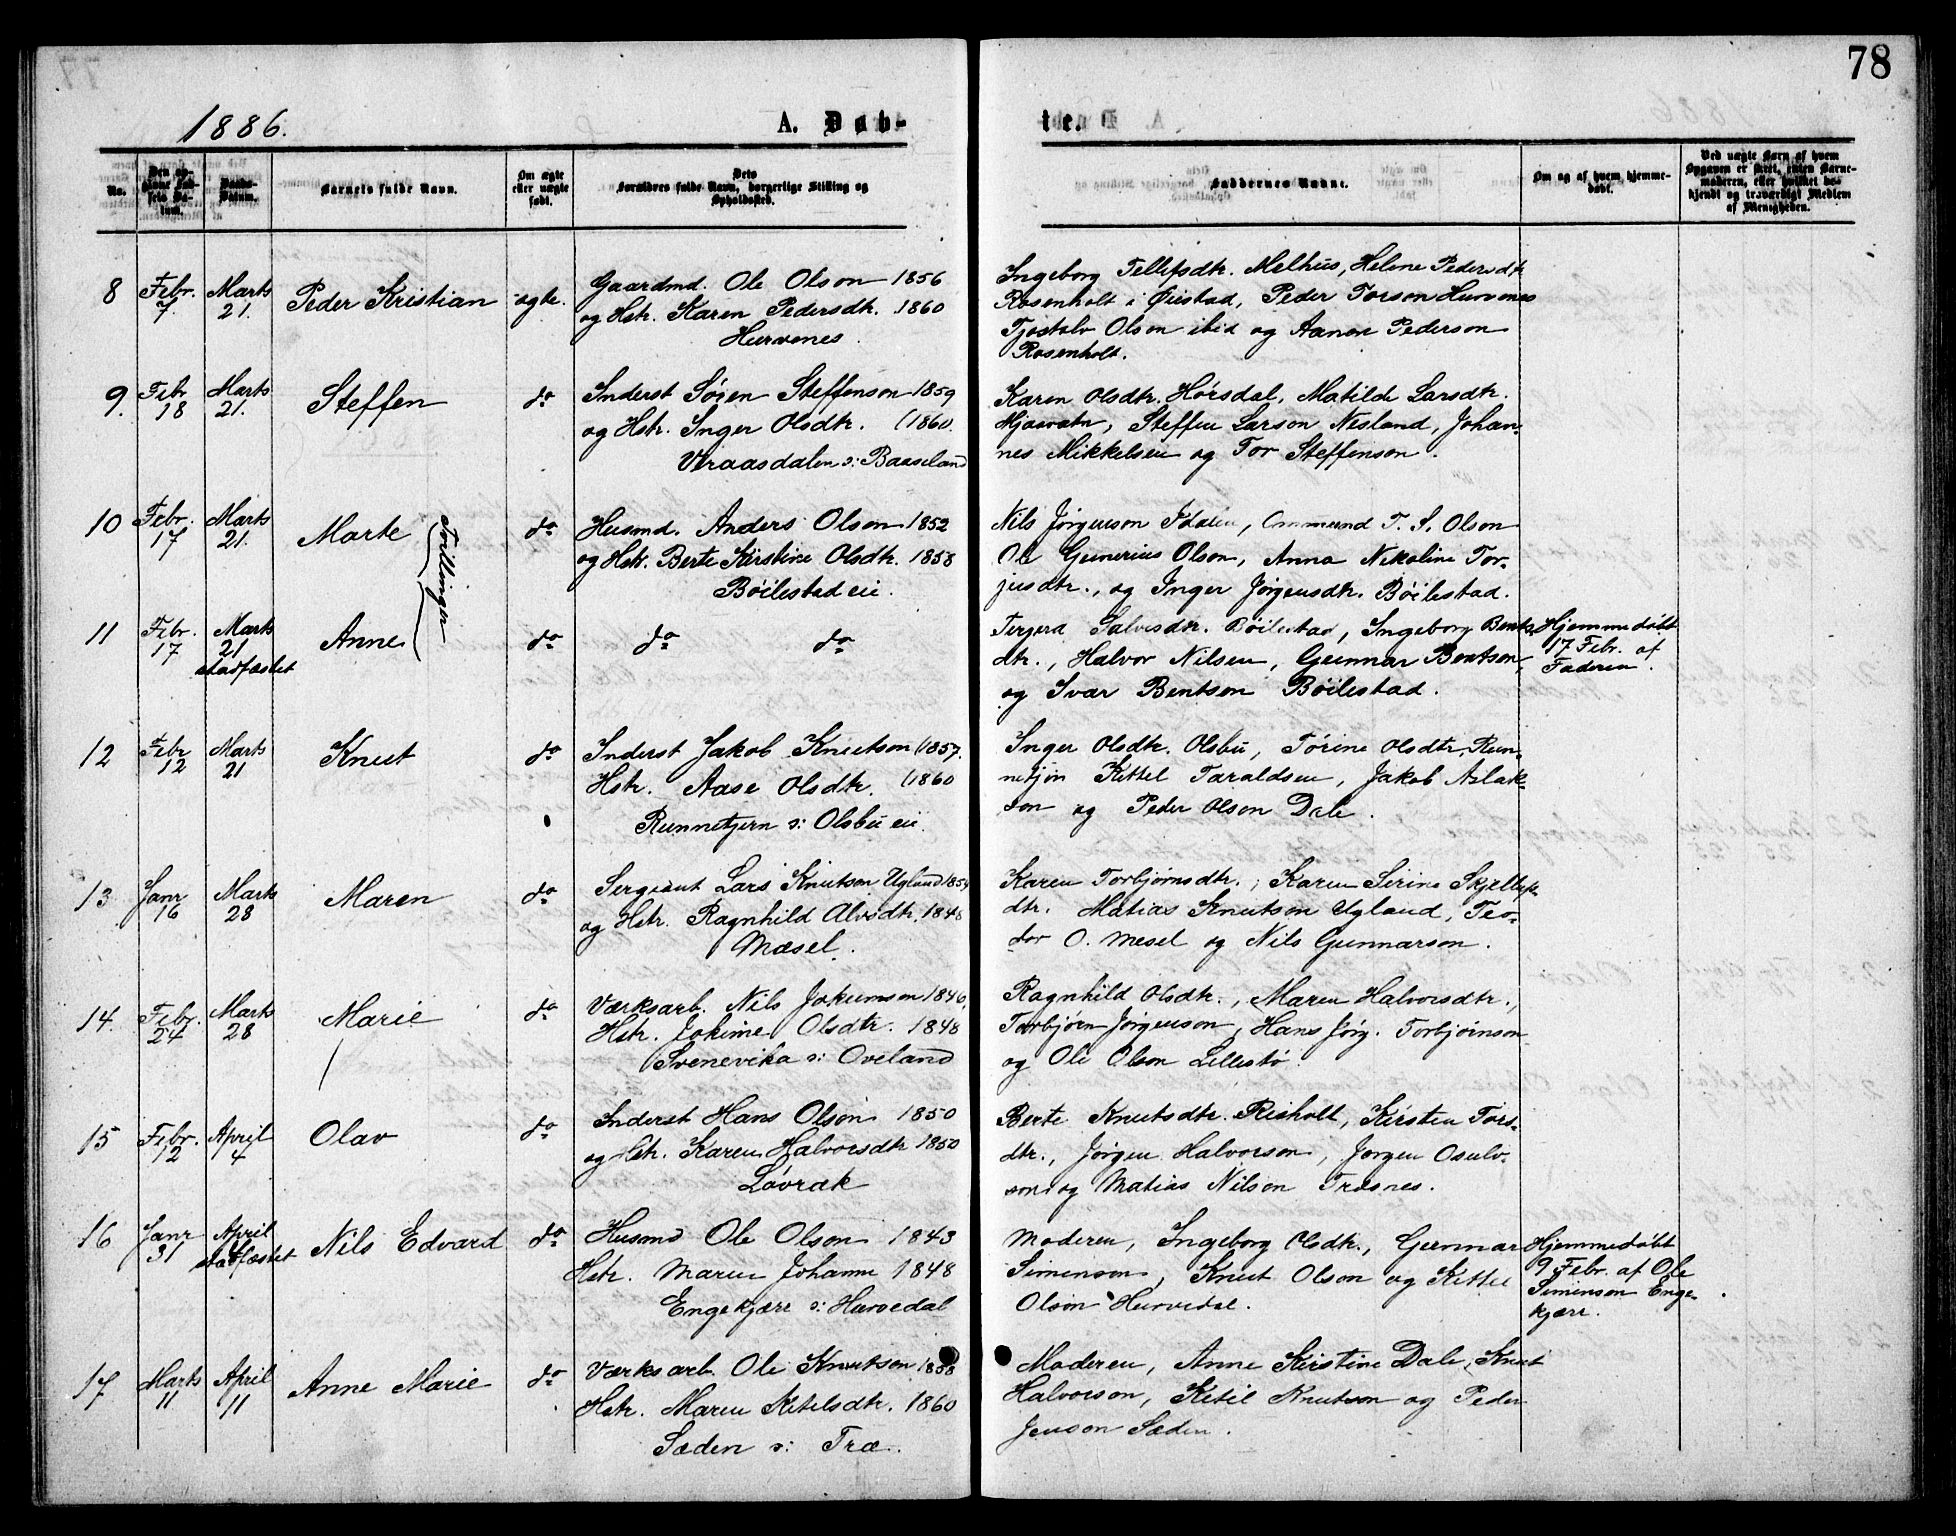 78
1886.
A. Døb-
te.
No.
Barnets fulde Navn.
Om ægte eller uægte født.
Dets Forældres fulde Navn, borgerlige Stilling og Opholdssted.
Faddernes Navne.
Om og af hvem hjemmedøbt.
Ved uægte Barn af hvem Opgaven er skeet, enten Barnemoderen, eller hvilket bekjendt og troværdigt Medlem af Menigheden.
8 Febr. 7. Marts 21. Peder Kristian ægte.
Gaardmd. Ole Olson 1856
og Hstr. Karen Pedersdtr. 1860
Hurvenes
Ingeborg Tellefsdtr. Melhus, Helene Pedersdtr
Rosenholt i Øiestad, Peder Torson Hurvenes
Tjostolv Olson ibid og Aanon Pederson
Rosenholt.
9. Febr 18 Marts 21. Steffen do
Inderst Søren Steffenson 1859
og Hstr. Inger Olsdtr. (1860
Vraasdalen o: Baaseland
Karen Olsdtr. Hørsdal, Matilde Larsdtr.
Mjaavatn, Steffen Larson Nesland, Johan-
nes Mikkelsen og Tor Steffenson.
10 Febr. 17 Marts 21. Marte do
Tvillinger
Husmd. Anders Olson 1852
og Hstr. Berte Kirstine Olsdtr. 1858
Bøilestad eie.
Nils Jørgenson Idalen, Ommund T. S. Olson
Ole Gunerius Olson, Anna Nikoline Tor-
jusdtr., og Inger Jørgensdtr. Bøilestad.
11 Febr. 17 Marts 21 stadfæstet Anne do do do
Tergerd Salvesdtr. Bøilestad, Ingeborg Bents-
dtr., Halvor Nilsen, Gunnar Bentson,
og Ivar Bentson Bøilestad.
Hjemmedøbt
17 Febr. af
Faderen.
12 Febr 12 Marts 21 Knut do
Inderst Jakob Knutson (1857.
Hstr. Aase Olsdtr. (1860
Runnetjern o: Olsbu eie.
Inger Olsdtr. Olsbu, Tørine Olsdtr. Run-
netjøn Kittel Taraldsen, Jakob Aslak-
son og Peder Olson Dale.
13 Janr 16 Marts 28 Maren do
Sergeant Lars Knutson Ugland 1854
og Hstr. Ragnhild Alvsdtr. 1848
Mæsel.
Karen Torbjørnsdtr., Karen Sirine Skjellep-
dtr. Matias Knutson Ugland, Teo-
dor O. Mesel og Nils Gunnarson.
14. Febr. 24 Marts 28 Marie do
Værksarb. Nils Jokumsen 1846,
Hstr. Jokime Olsdtr. 1848
Svenevika o: Oveland
Ragnhild Olsdtr., Maren Halvorsdtr.,
Torbjørn Jørgenson, Hans Jørg. Torbjørnson
og Ole Olson Lillestø.
15 Febr. 12 April 4 Olav do
Inderst Hans Olson 1850
og Hstr. Karen Halvorsdtr 1850
Løvrak
Berte Knutsdtr. Risholt, Kirsten Tors-
dtr., Jørgen Halvorson, Jørgen Osulv-
son og Matias Nilson Træsnes.
16 Janr 31 April stadfæstet Nils Edvard do
Husmd Ole Olson 1843
Hstr. Maren Johanne 1848
Engekjærr o: Hurvedal
Moderen, Ingeborg Olsdtr., Gunnar
Simenson, Knut Olson og Kittel
Olson Hurvedal.
Hjemmedøbt
9 Febr. af Ole
Simenson Enge-
kjærr.
17 Marts 11 April 11 Anne Marie do
Værksarb. Ole Knutson 1858
Hstr. Maren Ketilsdtr. 1860
Sæden o: Træ.
Moderen, Anne Kirstine Dale, Knut
Halvorson, Ketil Knutson og Peder
Jenson Sæden.